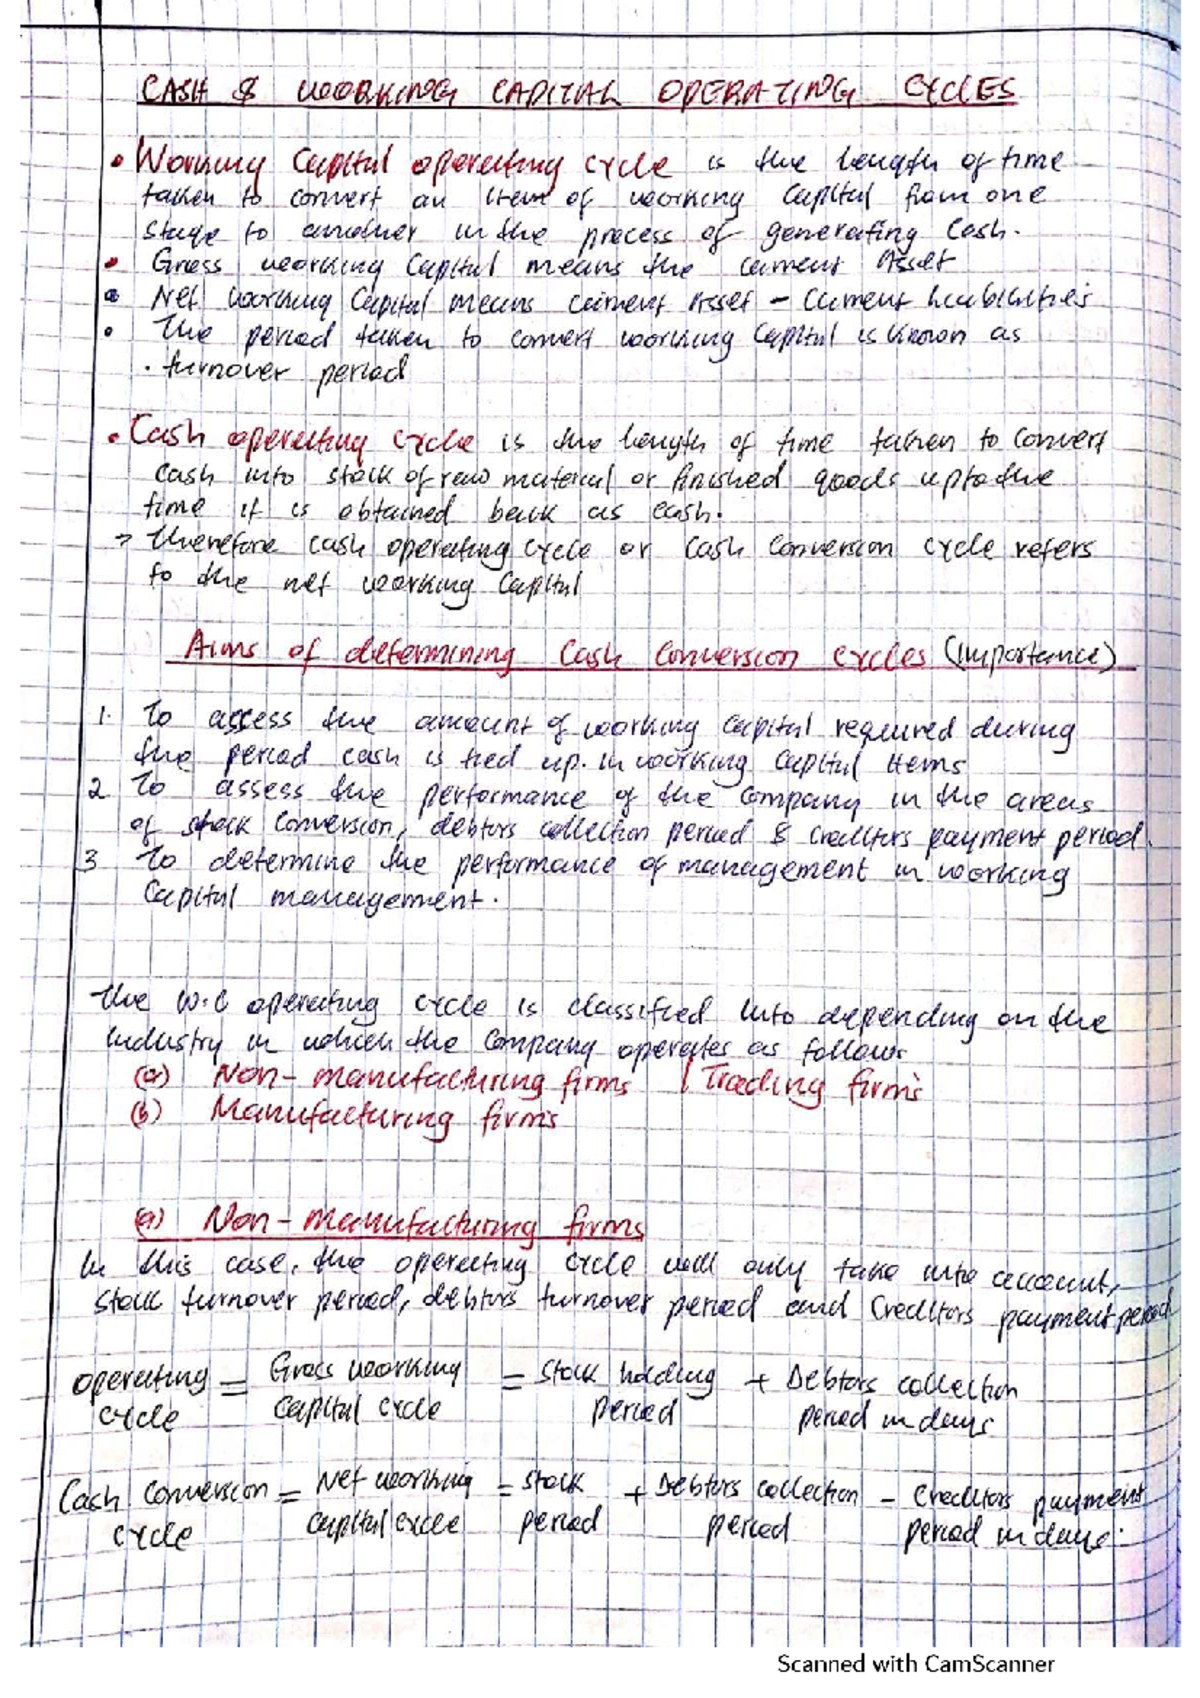 CASH & WORKING CAPITAL OPERATING CYCLES
• Working Capital operating cycle is the length of time
taken to convert an item of working capital from one
stage to another in the process of generating cash.
• Gross working capital means the current Asset
• Net working Capital means current Asset - current liabilities
• The period taken to convert working capital is known as
. turnover period
• Cash operating cycle is the length of time taken to convert
cash into stock of raw material or finished goods upto the
time it is obtained back as cash.
→ Therefore cash operating cycle or cash conversion cycle refers
to the net working capital
Aims of determining cash conversion cycles (importance)
1. To access the amount of working capital required during
the period cash is tied up. in working capital items
2 To assess the performance of the company in the areas
of stock conversion, debtors collection period & creditors payment period.
3 To determine the performance of management in working
Capital management.
The W.C operating cycle is classified into depending on the
industry in which the company operates as follows
(a) Non-manufacturing firms | Trading firms
(b) Manufacturing firms
(a) Non-manufacturing firms
In this case, the operating cycle will only take into account,
stock turnover period, debtors turnover period and creditors payment period
operating = Gross working = Stock holding + Debtors collection
cycle capital cycle period period in days
Cash conversion = Net working = stock + Debtors collection - Creditors payment
cycle capital cycle period period period in days.
Scanned with CamScanner